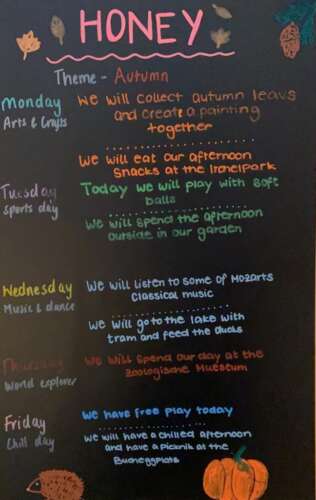 HONEY
Theme - Autumn
Monday
Arts & Crafts
We will collect autumn leavs
and create a painting
together
We will eat our afternoon
Snacks at the Irchelpark
Tuesday
Sports day
Today we will play with soft
balls
We will spend the afternoon
outside in our garden
Wednesday
Music & dance
We will listen to some of Mozarts
classical music
We will go to the lake with
tram and feed the ducks
Thursday
World explorer
We will spend our day at the
Zoologische Museum
Friday
Chill day
We have free play today
We will have a chilled afternoon
and have a Picknik at the
Bucheggplatz